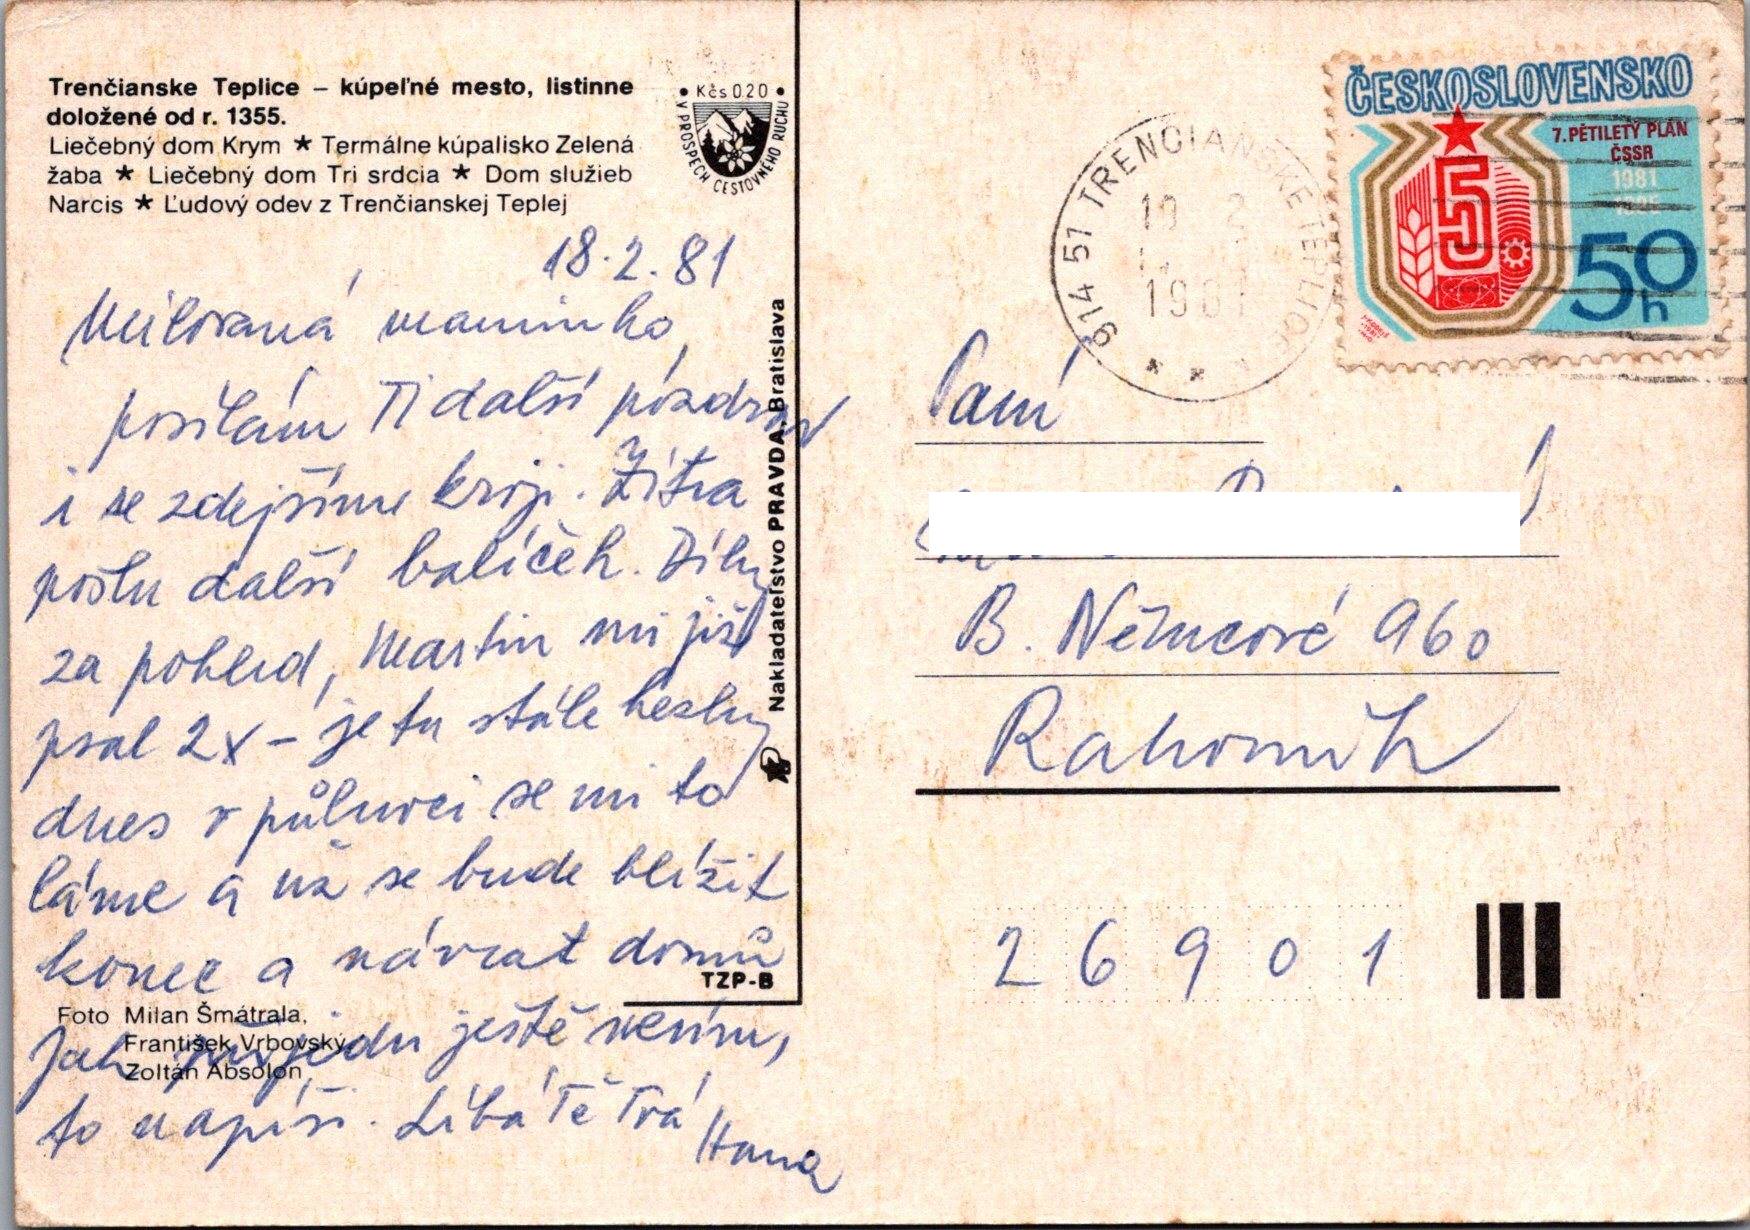 Trenčianske Teplice – kúpeľné mesto, listinne
doložené od r. 1355.
Liečebný dom Krym ★ Termálne kúpalisko Zelená
žaba ★ Liečebný dom Tri srdcia ★ Dom služieb
Narcis ★ Ľudový odev z Trenčianskej Teplej
• Kčs 0.20 •
V PROSPECH CESTOVNÉHO RUCHU
18.2.81
Milovaná maminko,
posílám Ti další pozdrav
i se zdejšíme kroji. Zítra
pošlu další balíček. Díky
za pohled, Martin mi již
psal 2x – je tu stále hezky
dnes v půlnoci se mi to
láme a už se bude blížit
konec a návrat domů
Jak přijedu ještě nevím,
to napíši. Líbá Tě Tvá
Hana
Foto Milan Šmátrala,
František Vrbovský,
Zoltán Absolon
Nakladateľstvo PRAVDA, Bratislava
TZP-B
914 51 TRENČIANSKE TEPLICE
19 2
1981
ČESKOSLOVENSKO
7. PĚTILETÝ PLÁN
ČSSR
1981
1985
5
50
h
Paní
B. Němcové 960
Rakovník
26901